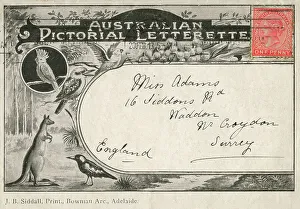 AUSTRALIAN
PICTORIAL LETTERETTE
ONE PENNY
Miss Adams
16 Siddons Rd
Waddon
Nr Croydon
Surrey
England
J. B. Siddall, Print., Bowman Arc., Adelaide